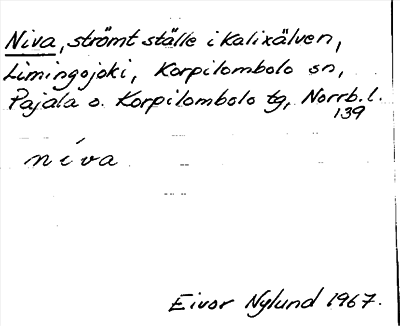 Niva, strömt ställe i Kalixälven,
Limingojoki, Korpilombolo sn,
Pajala o. Korpilombolo tg, Norrb. l.
139
níva
Eivor Nylund 1967.